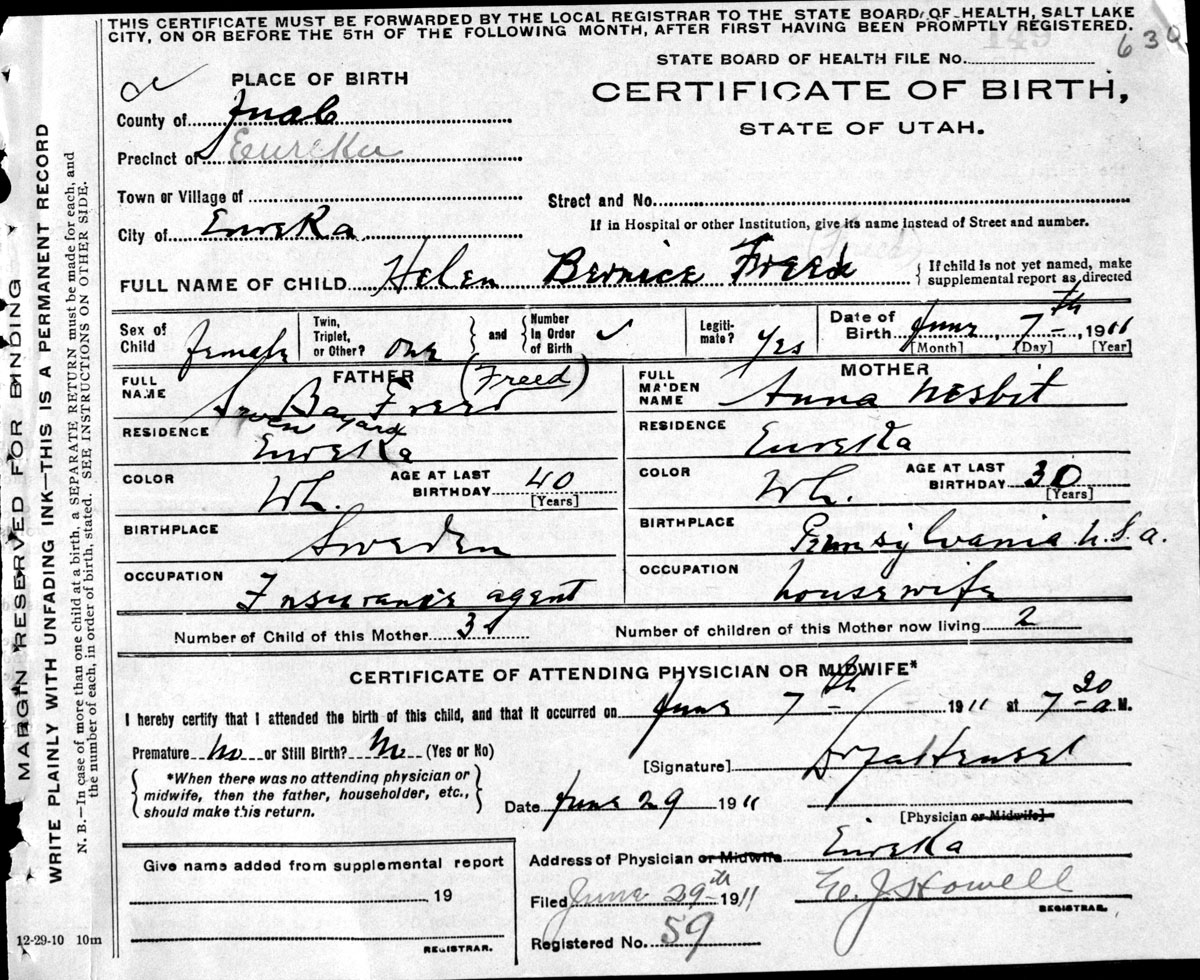 THIS CERTIFICATE MUST BE FORWARDED BY THE LOCAL REGISTRAR TO THE STATE BOARD OF HEALTH, SALT LAKE
CITY, ON OR BEFORE THE 5TH OF THE FOLLOWING MONTH, AFTER FIRST HAVING BEEN PROMPTLY REGISTERED.
149
630
STATE BOARD OF HEALTH FILE No.
PLACE OF BIRTH
CERTIFICATE OF BIRTH,
STATE OF UTAH.
County of Juab
Precinct of Eureka
Town or Village of
Street and No.
City of Eureka
If in Hospital or other Institution, give its name instead of Street and number.
(Freed)
FULL NAME OF CHILD Helen Bernice Freed
If child is not yet named, make
supplemental report as directed
Sex of Child female
Twin, Triplet, or Other? one
and Number In Order of Birth
Legiti-mate? Yes
Date of Birth June 7th 1911
[Month] [Day] [Year]
FATHER (Freed)
FULL NAME Swen Bayard Freed
RESIDENCE Eureka
COLOR Wh. AGE AT LAST BIRTHDAY 40
[Years]
BIRTHPLACE Sweden
OCCUPATION Insurance agent
MOTHER
FULL MAIDEN NAME Anna Nesbit
RESIDENCE Eureka
COLOR Wh. AGE AT LAST BIRTHDAY 30
[Years]
BIRTHPLACE Pennsylvania U.S.a.
OCCUPATION housewife
Number of Child of this Mother 3d
Number of children of this Mother now living 2
CERTIFICATE OF ATTENDING PHYSICIAN OR MIDWIFE*
I hereby certify that I attended the birth of this child, and that it occurred on June 7th 1911 at 7 20 a M.
Premature No or Still Birth? No (Yes or No)
[Signature]
*When there was no attending physician or
midwife, then the father, householder, etc.,
should make this return.
Date June 29 1911
[Physician or Midwife]
Address of Physician or Midwife Eureka
Give name added from supplemental report
19
REGISTRAR.
Filed June 29th 1911 E. J. Howell
REGISTRAR.
Registered No. 59
12-29-10 10m
MARGIN RESERVED FOR BINDING
WRITE PLAINLY WITH UNFADING INK—THIS IS A PERMANENT RECORD
N. B.—In case of more than one child at a birth, a SEPARATE RETURN must be made for each, and
the number of each, in order of birth, stated. SEE INSTRUCTIONS ON OTHER SIDE.